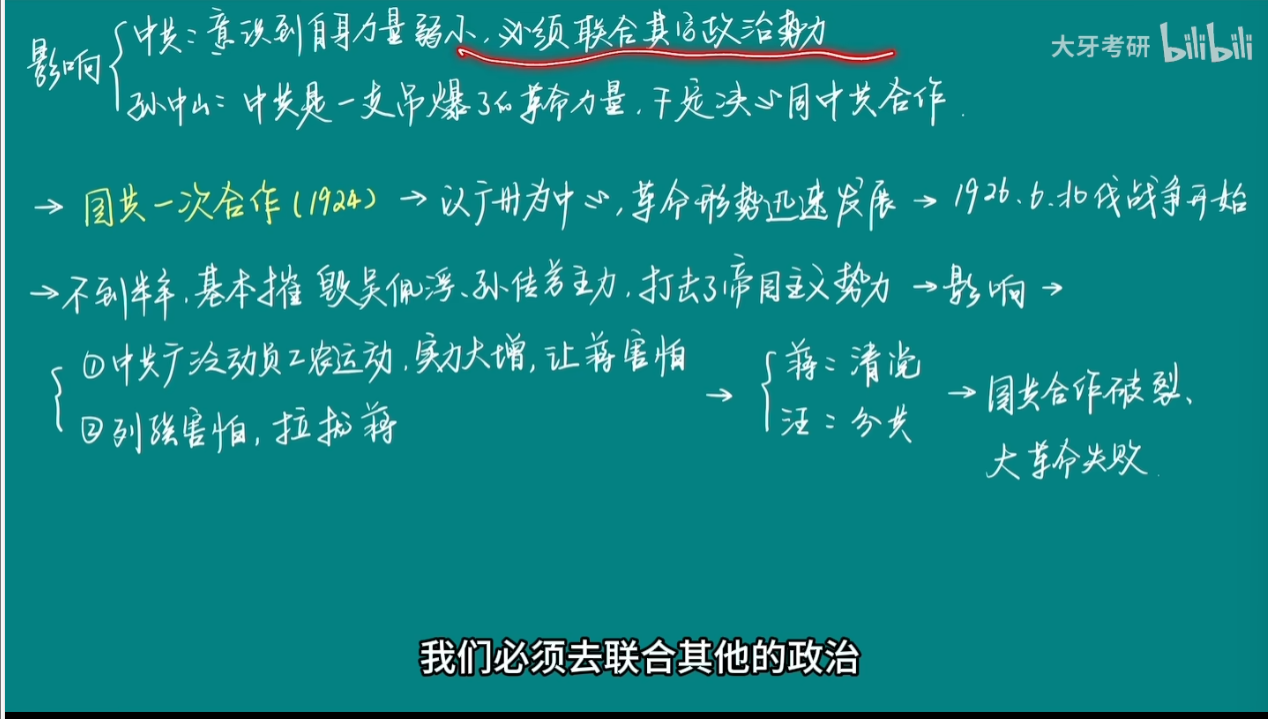 影响
中共：意识到自身力量弱小，必须联合其它政治势力
大牙考研 bilibili
孙中山：中共是一支吊爆了的革命力量，下定决心同中共合作.
→ 国共一次合作(1924) → 以广州为中心，革命形势迅速发展 → 1926.6.北伐战争开始
→ 不到半年，基本摧毁吴佩浮、孙传芳主力，打击了帝国主义势力 → 影响 →
①中共广泛动员工农运动，实力大增，让蒋害怕
②列强害怕，拉拢蒋
→ 蒋：清党
汪：分共
→ 国共合作破裂、
大革命失败.
我们必须去联合其他的政治